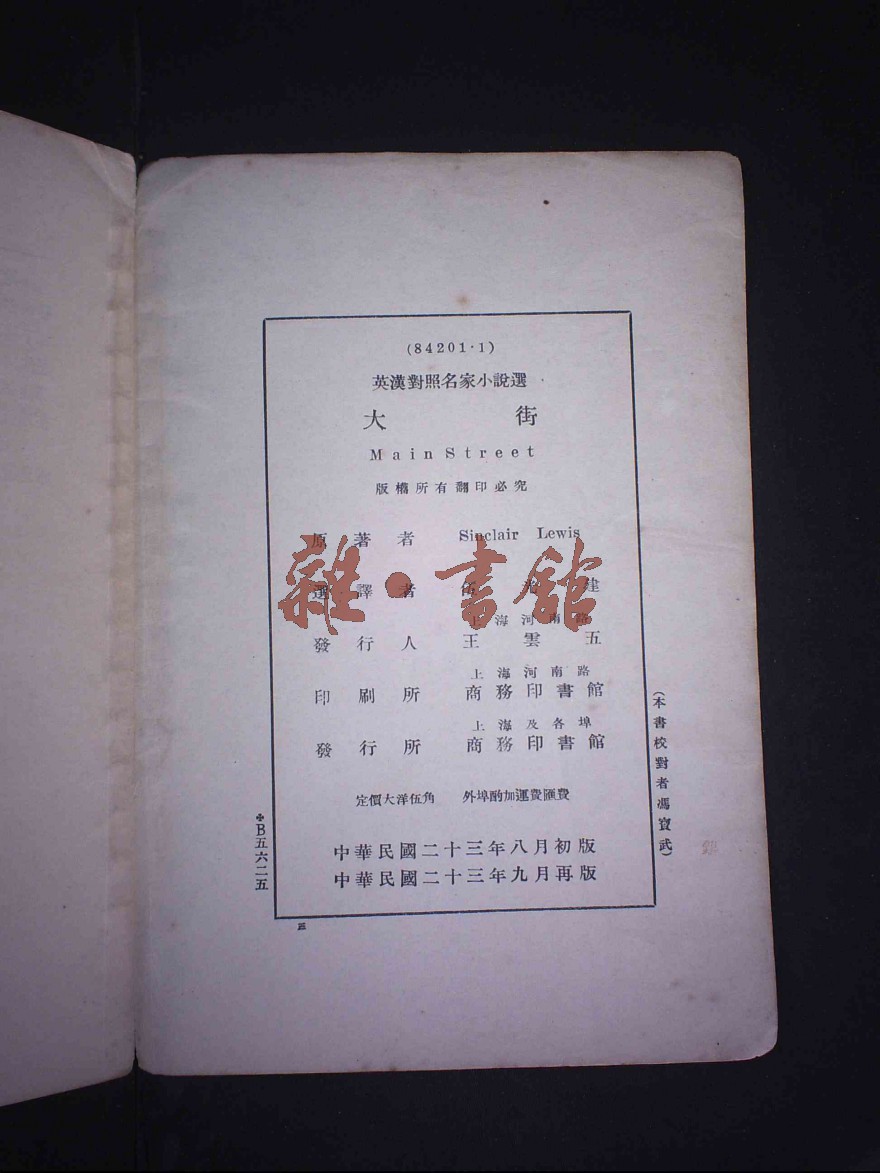 (84201·1)
英漢對照名家小說選
大街
Main Street
版權所有翻印必究
原著者 Sinclair Lewis
選譯者 伍光建
上海河南路
發行人 王雲五
上海河南路
印刷所 商務印書館
上海及各埠
發行所 商務印書館
定價大洋伍角 外埠酌加運費匯費
中華民國二十三年八月初版
中華民國二十三年九月再版
(本書校對者馮寶武)
B五六二五
雜·書館